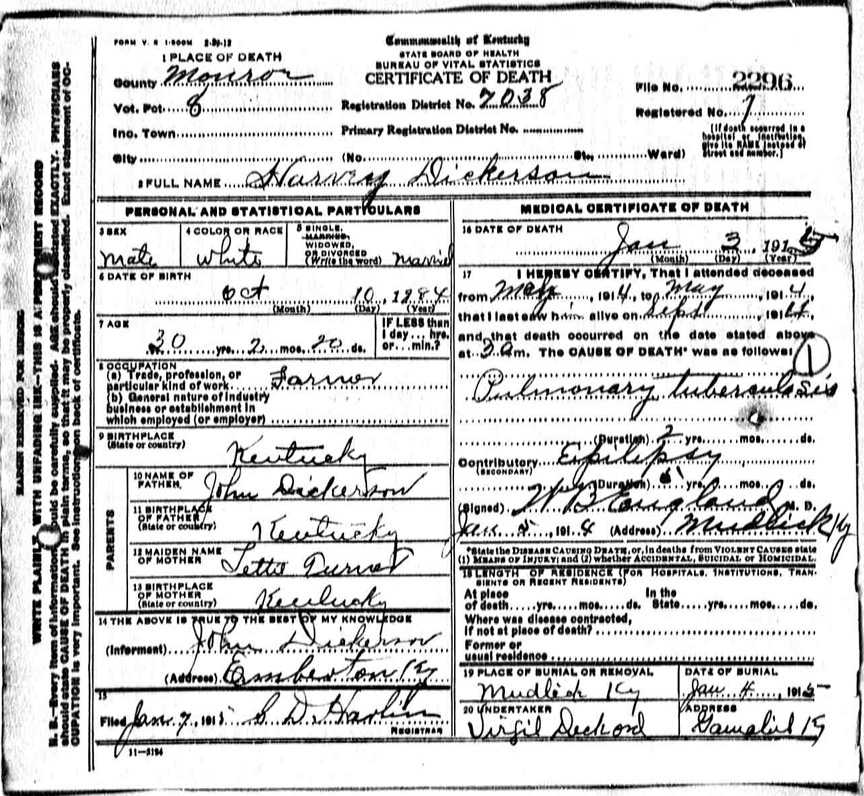 FORM V. S. 1-500M 2-24-12
Commonwealth of Kentucky
STATE BOARD OF HEALTH
BUREAU OF VITAL STATISTICS
CERTIFICATE OF DEATH
1 PLACE OF DEATH
County Monroe
Vot. Pct. 8
Inc. Town
City (No. St., Ward)
Registration District No. 7038
Primary Registration District No.
File No. 2296
Registered No. 1
[If death occurred in a hospital or institution, give its NAME instead of street and number.]
2 FULL NAME Harvey Dickerson
PERSONAL AND STATISTICAL PARTICULARS
3 SEX
Male
4 COLOR OR RACE
White
5 SINGLE, MARRIED, WIDOWED, OR DIVORCED (Write the word) Married
6 DATE OF BIRTH
Oct 10, 1884
(Month) (Day) (Year)
7 AGE
30 yrs. 2 mos. 20 ds.
IF LESS than 1 day... hrs. or... min.?
8 OCCUPATION
(a) Trade, profession, or
particular kind of work Farmer
(b) General nature of industry
business or establishment in
which employed (or employer)
9 BIRTHPLACE
(State or country) Kentucky
PARENTS
10 NAME OF
FATHER John Dickerson
11 BIRTHPLACE
OF FATHER
(State or country) Kentucky
12 MAIDEN NAME
OF MOTHER Turner
13 BIRTHPLACE
OF MOTHER
(State or country) Kentucky
14 THE ABOVE IS TRUE TO THE BEST OF MY KNOWLEDGE
(Informent) John Dickerson
(Address) Emberton Ky
15
Filed Jan. 7, 1915 S. D. Harlin
REGISTRAR
11-3184
MEDICAL CERTIFICATE OF DEATH
16 DATE OF DEATH
Jan 3, 1915
(Month) (Day) (Year)
17 I HEREBY CERTIFY, That I attended deceased
from May, 1914, to May, 1914,
that I last saw him alive on Sept, 1914,
and that death occurred on the date stated above
at 3 am. The CAUSE OF DEATH* was as follows:
1
Pulmonary tuberculosis
(Duration) 2 yrs. mos. ds.
Contributory Epilepsy
(SECONDARY)
(Duration) yrs. mos. ds.
(Signed) W B England M. D.
Jan 5, 1914 (Address) Mudlick Ky
*State the DISEASE CAUSING DEATH, or, in deaths from VIOLENT CAUSES state
(1) MEANS OF INJURY; and (2) whether ACCIDENTAL, SUICIDAL OR HOMICIDAL.
18 LENGTH OF RESIDENCE (FOR HOSPITALS, INSTITUTIONS, TRANSIENTS OR RECENT RESIDENTS)
At place of death yrs. mos. ds. In the State yrs. mos. ds.
Where was disease contracted,
if not at place of death?
Former or
usual residence
19 PLACE OF BURIAL OR REMOVAL
Mudlick Ky
DATE OF BURIAL
Jan. 4, 1915
20 UNDERTAKER
Virgil Deckard
ADDRESS
Gamaliel Ky
MARGIN RESERVED FOR BINDING
WRITE PLAINLY WITH UNFADING INK—THIS IS A PERMANENT RECORD
N. B.—Every item of information should be carefully supplied. AGE should be stated EXACTLY. PHYSICIANS
should state CAUSE OF DEATH in plain terms, so that it may be properly classified. Exact statement of OC-
CUPATION is very important. See instructions on back of certificate.